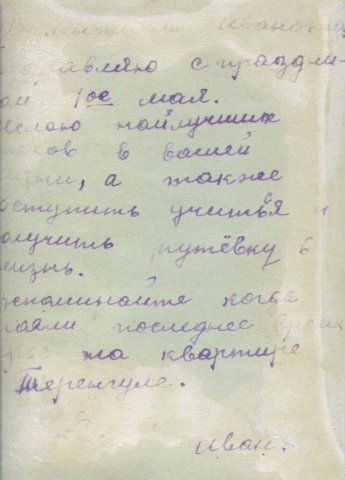 Валенти Иванов
здравляю с праздни-
ом 1ое мая.
елаю наилучших
хов в вашей
зни, а также
оступить учиться и
олучить путёвку в
жизнь.
споминайте когда
последнее время
на квартире
Теренгуле.
Иван.